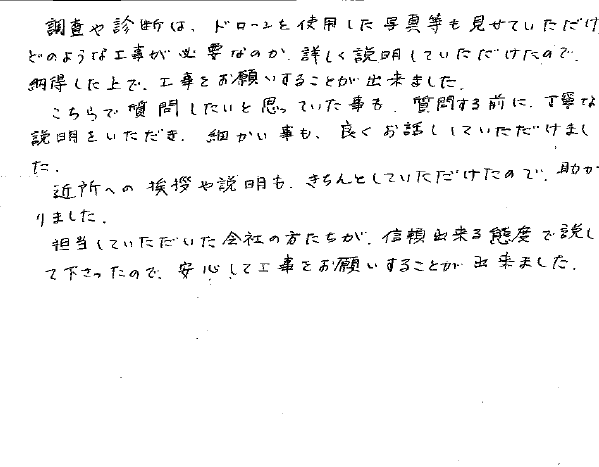 調査や診断は、ドローンを使用した写真等も見せていただけ
どのような工事が必要なのか、詳しく説明していただけたので、
納得した上で、工事をお願いすることが出来ました。
こちらで質問したいと思っていた事も、質問する前に、丁寧な
説明をいただき、細かい事も、良くお話ししていただけまし
た。
近所への挨拶や説明も、きちんとしていただけたので、助か
りました。
担当していただいた会社の方たちが、信頼出来る態度で説し
て下さったので、安心して工事をお願いすることが出来ました。